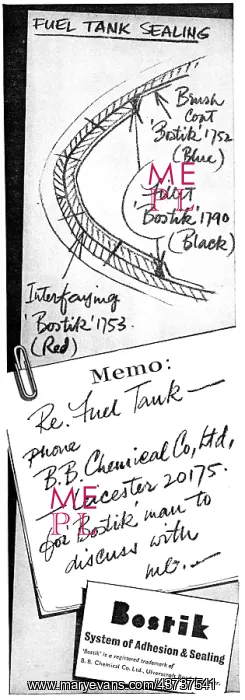 FUEL TANK SEALING
Brush
Coat
'Bostik' 1752
(Blue)
Fillet
'Bostik' 1790
(Black)
Interfaying
'Bostik' 1753.
(Red)
Memo:
Re. Fuel Tank —
phone
B.B. Chemical Co, Ltd,
Leicester 20175.
for 'Bostik' man to
discuss with
me. —
ME
PL
ME
PL
Bostik
System of Adhesion & Sealing
'Bostik' is a registered trademark of
B. B. Chemical Co. Ltd., Ulverscroft
www.maryevans.com/49797541